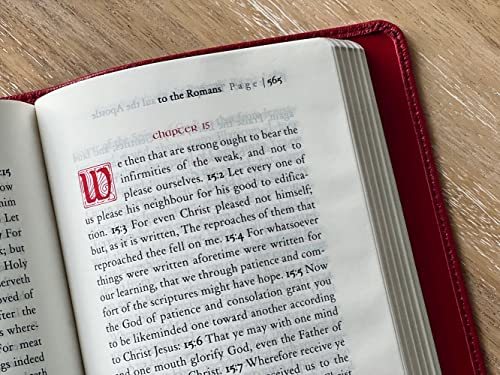 :15
Let
but
Holy
oved of
where-
For meat
ings indeed
to the Romans Page | 565
chapter 15
We then that are strong ought to bear the
infirmities of the weak, and not to
please ourselves. 15:2 Let every one of
us please his neighbour for his good to edifica-
tion. 15:3 For even Christ pleased not himself;
but, as it is written, The reproaches of them that
reproached thee fell on me. 15:4 For whatsoever
things were written aforetime were written for
our learning, that we through patience and com-
fort of the scriptures might have hope. 15:5 Now
the God of patience and consolation grant you
to be likeminded one toward another according
to Christ Jesus: 15:6 That ye may with one mind
and one mouth glorify God, even the Father of
Christ. 15:7 Wherefore receive ye
received us to the